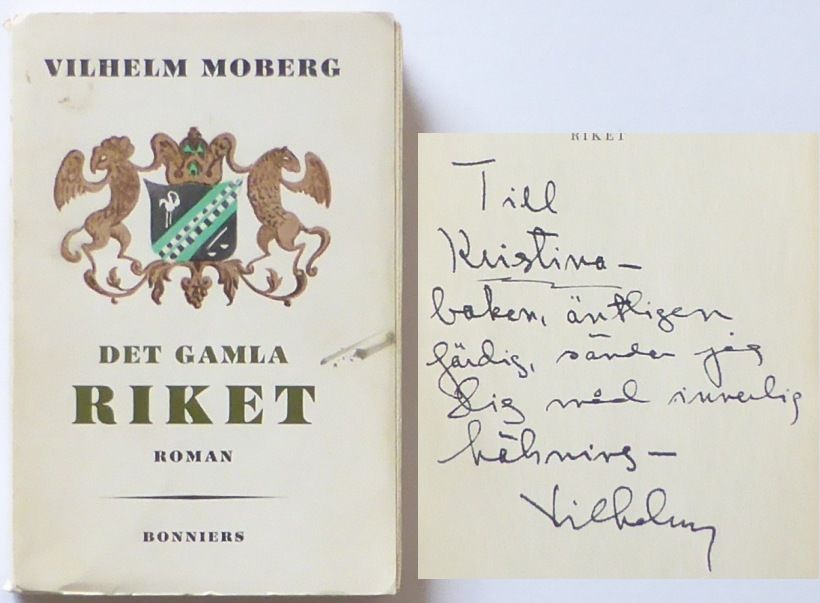 VILHELM MOBERG
DET GAMLA
RIKET
ROMAN
BONNIERS
RIKET
Till
Kristina –
boken, äntligen
färdig, sänder jag
Dig med innerlig
hälsning –
Vilhelm